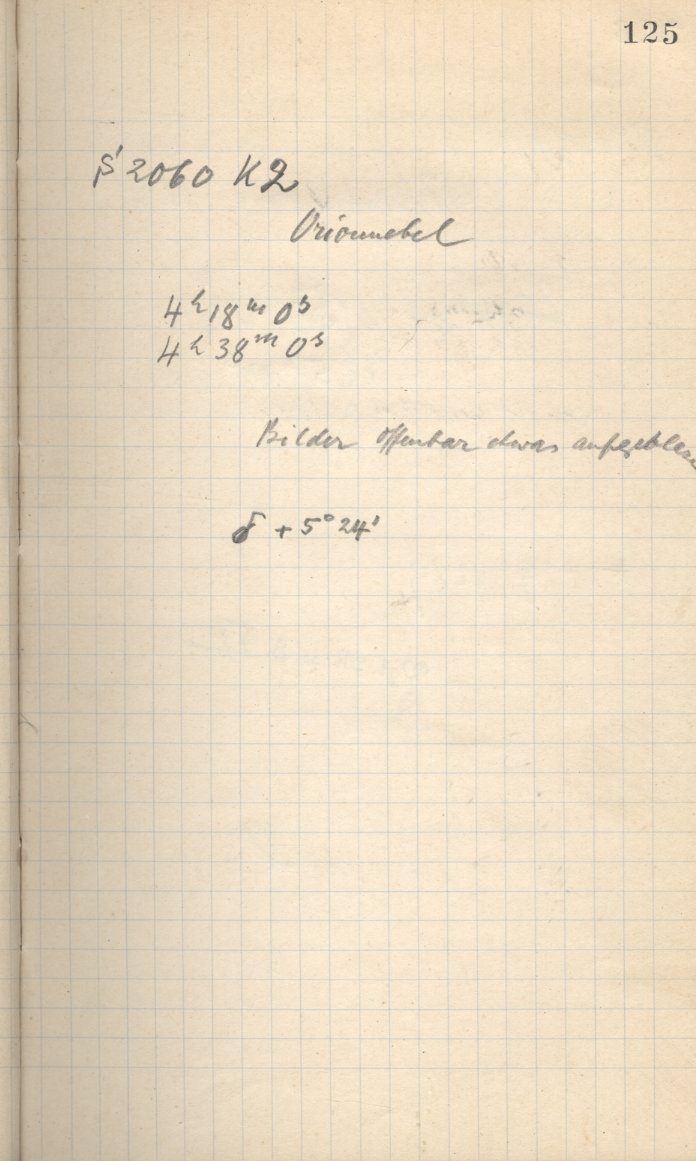 125
β 2060 K2
Orionnebel
4ʰ 18ᵐ 0ˢ
4ʰ 38ᵐ 0ˢ
Bilder offenbar etwas
δ + 5° 24'